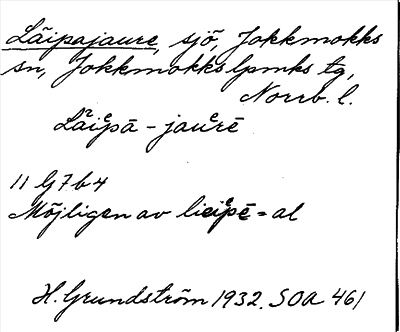 Läipajaure, sjö, Jokkmokks
sn, Jokkmokks lpmks tg,
Norrb. l.
Läi̯pā - jau̯rē
11 G7b4
Möjligen av = al
H. Grundström 1932. SOA 461